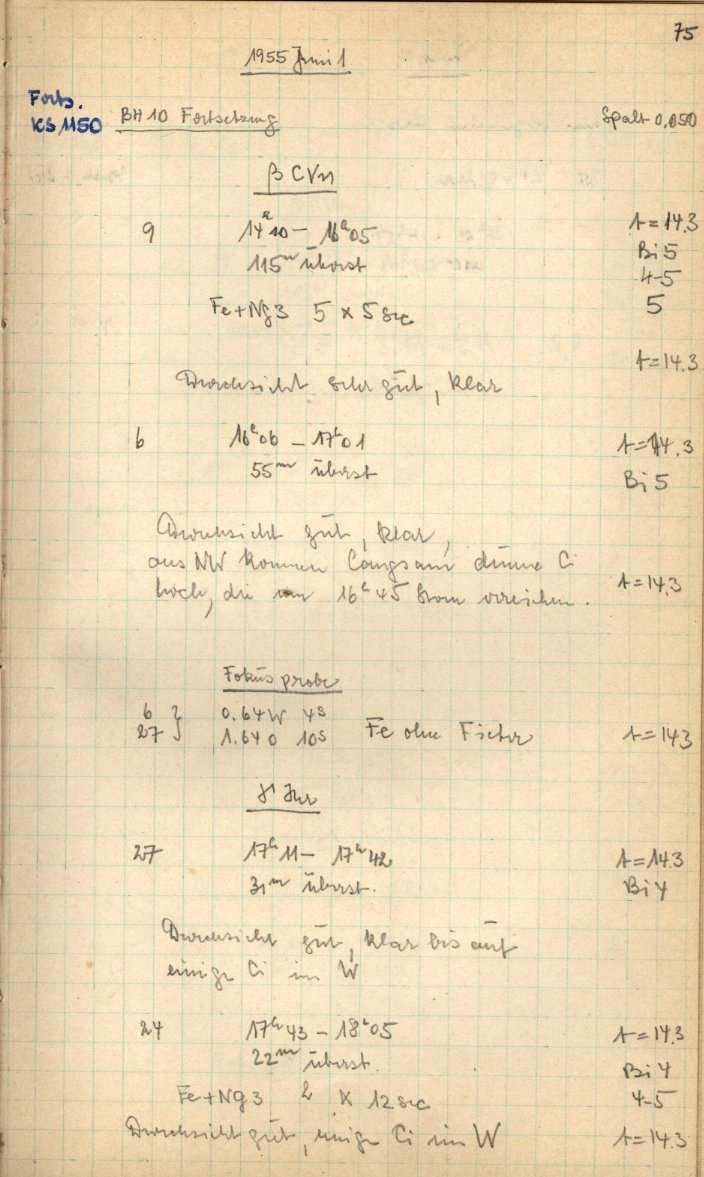 75
1955 Juni 1
Forts.
KS 1150 BH 10 Fortsetzung Spalt 0,050
β CVn
9 14h10 – 16h05 t=14.3
115m überst Bi 5
4-5
Fe+Ng3 5 x 5 sec 5
t=14.3
Durchsicht sehr gut, klar
6 16h06 – 17h01 t=14.3
55m überst Bi 5
Durchsicht gut, klar,
aus NW kommen langsam dünne Ci
hoch, die um 16h45 Strom erreichen. t=14.3
Fokusprobe
6 } 0.64W 4s
27 } 1.64O 10s Fe ohne Filter t=14.3
Her
27 17h11 – 17h42 t=14.3
31m überst. Bi 4
Durchsicht gut, klar bis auf
einige Ci im W
24 17h43 – 18h05 t=14.3
22m überst. Bi 4
Fe+Ng3 2 x 12 sec 4-5
Durchsicht gut, einige Ci im W t=14.3